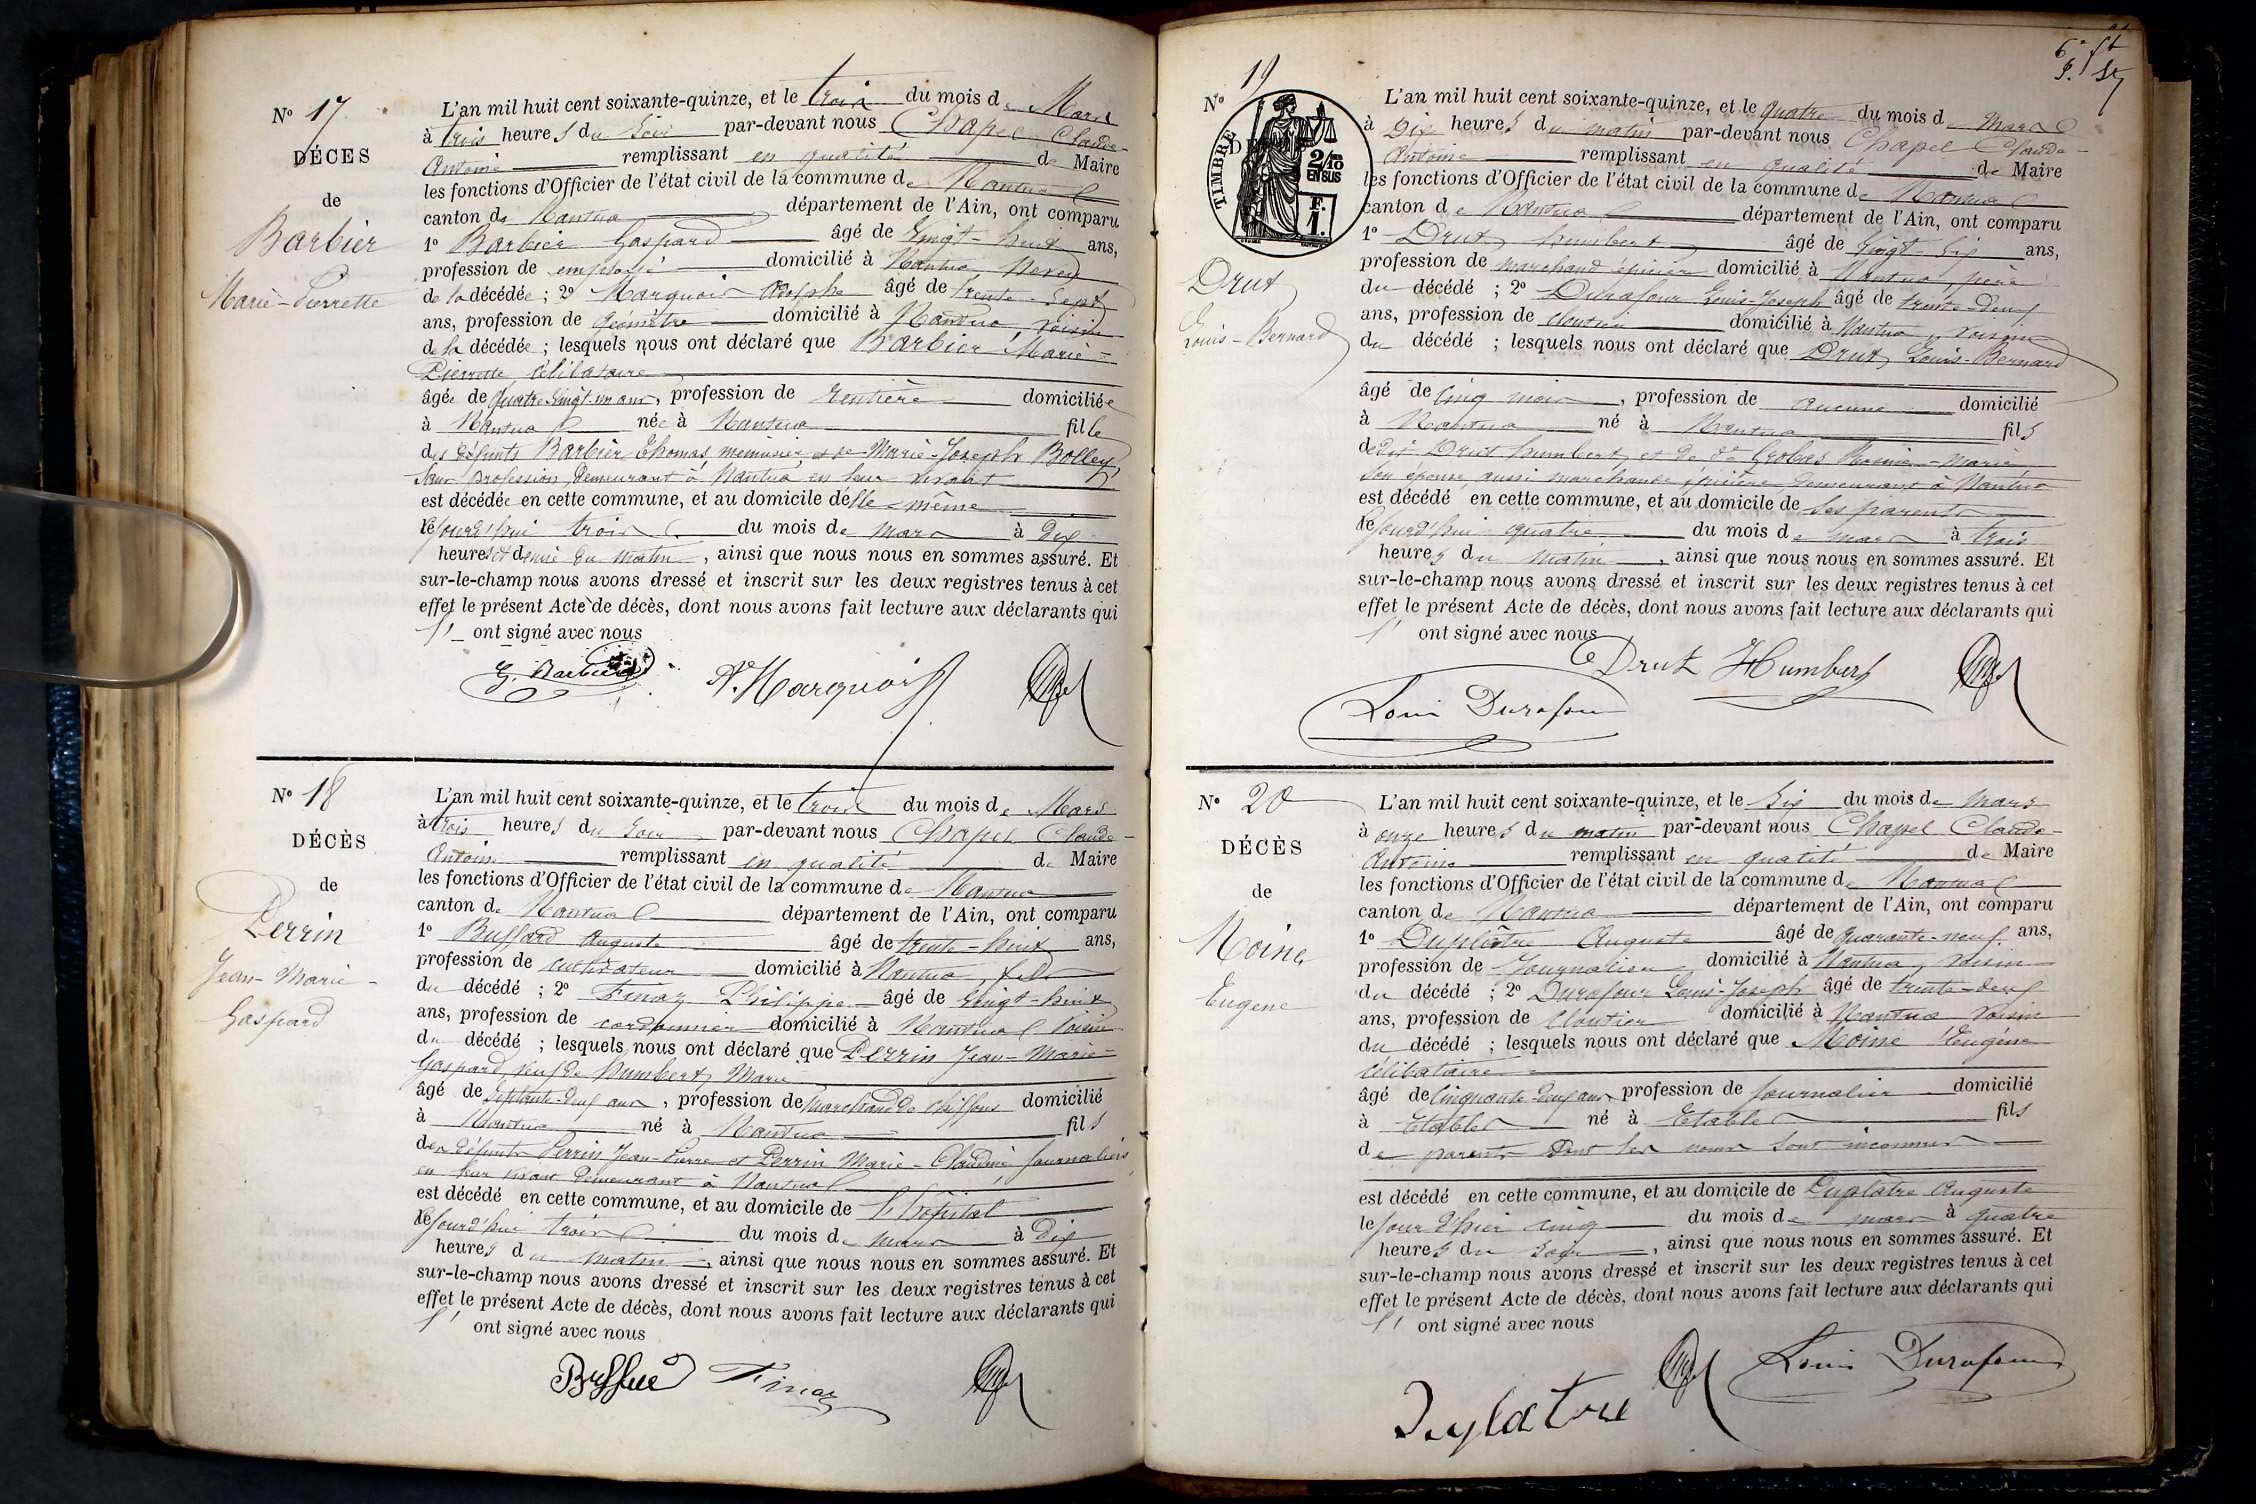 N° 17
DÉCES
de
Barbier
Marie-Pierrette
L'an mil huit cent soixante-quinze, et le trois du mois de Mars
à trois heures du soir par-devant nous Chapel Claude-
Antoine remplissant en qualité de Maire
les fonctions d'Officier de l'état civil de la commune de Nantua
canton de Nantua département de l'Ain, ont comparu
1° Barbier Gaspard âgé de vingt-huit ans,
profession de employé domicilié à Nantua, neveu
de la décédée ; 2° Marquois Adolphe âgé de trente-sept
ans, profession de géomètre domicilié à Nantua, voisin
de la décédée ; lesquels nous ont déclaré que Barbier Marie-
Pierrette célibataire
âgée de quatre vingt-un ans, profession de rentière domiciliée
à Nantua née à Nantua fille
des défunts Barbier Thomas, menuisier et de Marie-Joseph Bolley,
sans profession, demeurant à Nantua en leur vivant
est décédée en cette commune, et au domicile d'elle-même
le jourd'hui trois du mois de mars à dix
heures et demie du matin, ainsi que nous nous en sommes assuré. Et
sur-le-champ nous avons dressé et inscrit sur les deux registres tenus à cet
effet le présent Acte de décès, dont nous avons fait lecture aux déclarants qui
ont signé avec nous
G. Barbier A. Marquois
N° 18
DÉCÈS
de
Perrin
Jean-Marie-
Gaspard
L'an mil huit cent soixante-quinze, et le trois du mois de Mars
à trois heures du soir par-devant nous Chapel Claude-
Antoine remplissant en qualité de Maire
les fonctions d'Officier de l'état civil de la commune de Nantua
canton de Nantua département de l'Ain, ont comparu
1° Buffard Auguste âgé de trente-huit ans,
profession de cultivateur domicilié à Nantua,
du décédé ; 2° Finaz Philippe âgé de vingt-huit
ans, profession de cordonnier domicilié à Nantua voisin
du décédé ; lesquels nous ont déclaré que Perrin Jean-Marie-
Gaspard, veuf de Humbert, Marie
âgé de septante-deux ans, profession de marchand de chiffons domicilié
à Nantua né à Nantua fils
des défunts Perrin Jean-Pierre et Perrin Marie-Claudine journaliers
en leur vivant demeurant à Nantua
est décédé en cette commune, et au domicile de l'hôpital
le jourd'hui trois du mois de mars à dix
heures du matin, ainsi que nous nous en sommes assuré. Et
sur-le-champ nous avons dressé et inscrit sur les deux registres tenus à cet
effet le présent Acte de décès, dont nous avons fait lecture aux déclarants qui
ont signé avec nous
Finaz
N° 19
TIMBRE
2/10 EN SUS
F. 1.
Drut
Louis-Bernard
L'an mil huit cent soixante-quinze, et le quatre du mois de mars
à dix heures du matin par-devant nous Chapel Claude-
Antoine remplissant en qualité de Maire
les fonctions d'Officier de l'état civil de la commune de Nantua
canton de Nantua département de l'Ain, ont comparu
1° Drut, Humbert âgé de vingt-six ans,
profession de marchand épicier domicilié à Nantua, père
du décédé ; 2° Durafour Louis-Joseph âgé de trente-deux
ans, profession de cloutier domicilié à Nantua, voisin
du décédé ; lesquels nous ont déclaré que Drut, Louis-Bernard
âgé de cinq mois, profession de aucune domicilié
à Nantua né à Nantua fils
de dit Drut Humbert, et de de Marie
son épouse, aussi marchande épicière demeurant à Nantua
est décédé en cette commune, et au domicile de ses parents
le jourd'hui quatre du mois de mars à trois
heures du matin, ainsi que nous nous en sommes assuré. Et
sur-le-champ nous avons dressé et inscrit sur les deux registres tenus à cet
effet le présent Acte de décès, dont nous avons fait lecture aux déclarants qui
ont signé avec nous
Drut Humbert
Louis Durafour
N° 20
DÉCÈS
de
Moine
Eugène
L'an mil huit cent soixante-quinze, et le six du mois de mars
à onze heures du matin par-devant nous Chapel Claude-
Antoine remplissant en qualité de Maire
les fonctions d'Officier de l'état civil de la commune de Nantua
canton de Nantua département de l'Ain, ont comparu
1° Duplâtre Auguste âgé de quarante-neuf ans,
profession de Journalier domicilié à Nantua, voisin
du décédé ; 2° Durafour Louis-Joseph âgé de trente-deux
ans, profession de cloutier domicilié à Nantua voisin
du décédé ; lesquels nous ont déclaré que Moine Eugène
célibataire
âgé de cinquante-deux ans, profession de journalier domicilié
à Etables né à Etables fils
de parents dont les noms sont inconnus
est décédé en cette commune, et au domicile de Duplâtre Auguste
le jour d'hier cinq du mois de mars à quatre
heures du soir, ainsi que nous nous en sommes assuré. Et
sur-le-champ nous avons dressé et inscrit sur les deux registres tenus à cet
effet le présent Acte de décès, dont nous avons fait lecture aux déclarants qui
ont signé avec nous
Louis Durafour
Duplatre